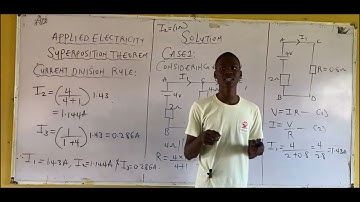 APPLIED ELECTRICITY
SUPERPOSITION THEOREM
CURRENT DIVISION RULE:
I₂ = (4/(4+1)) 1.43
= 1.144A
I₃ = (1/(1+4)) 1.43 = 0.286A
I₁ = 1.43A, I₂ = 1.144A & I₃ = 0.286A
SOLUTION
CASE 1:
CONSIDERING
A
I₁
4V
2Ω
B
R =
4+1
A
I₁
C
4V
2Ω
R = 0.8Ω
B
D
V = IR -- (1)
I = V/R -- (2)
I₁ = 4/(2+0.8) = 4/2.8 = 1.43A